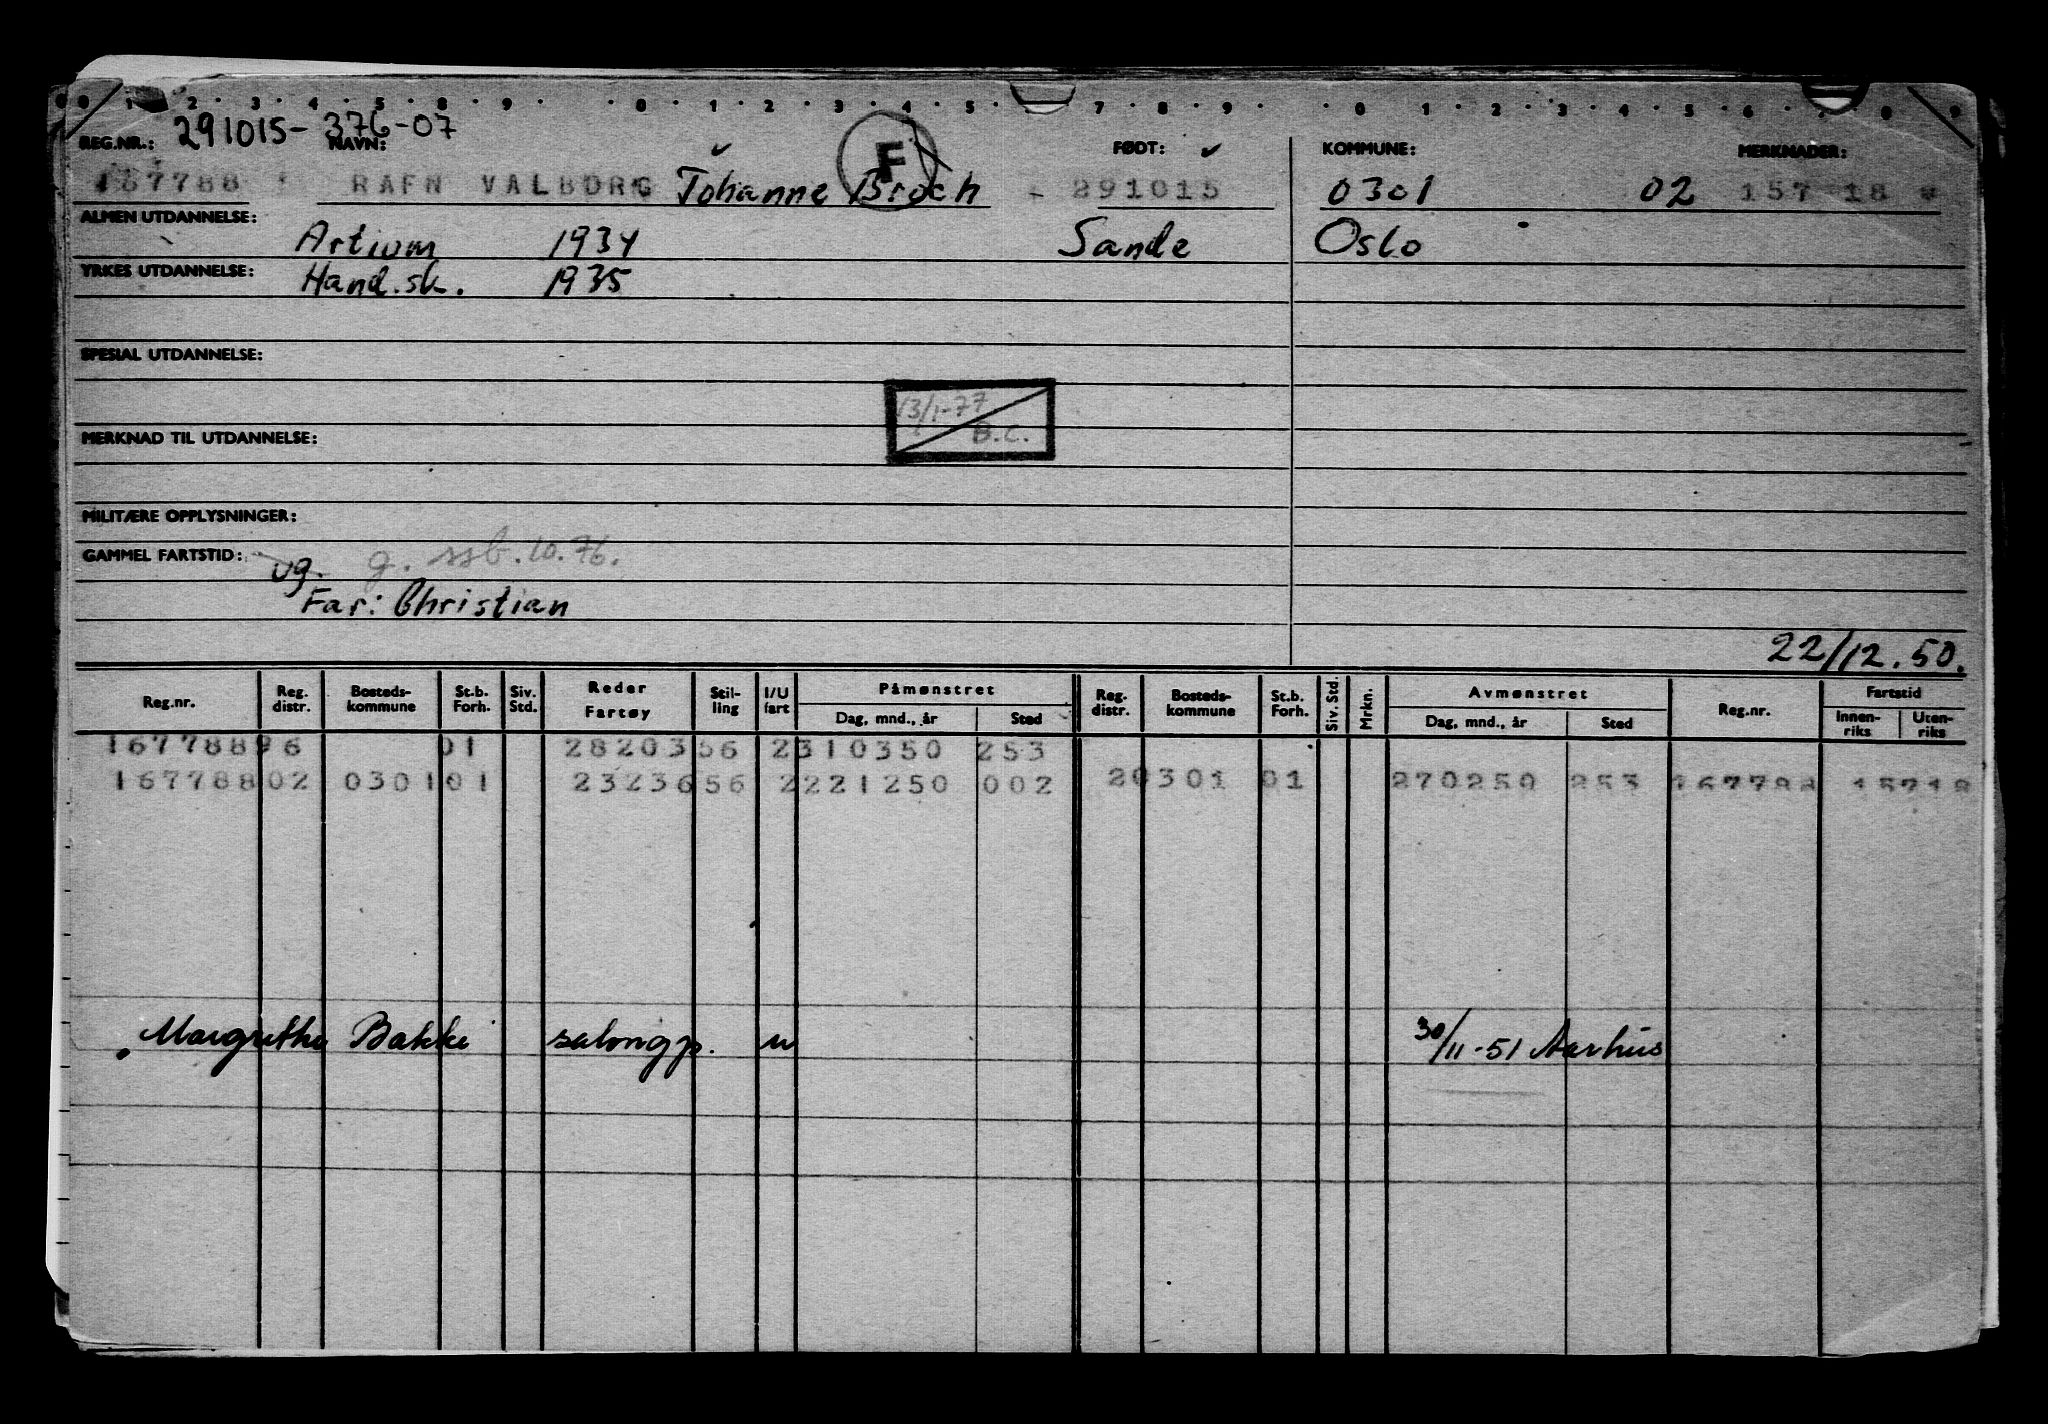 0 1 2 3 4 5 8 9 0 1 2 3 4 5 7 8 9 0 1 2 3 4 5 6 8 9
291015-376-07
REG.NR.: NAVN: F FØDT: KOMMUNE: MERKNADER:
167788 RAFN VALBORG Johanne Broch 291015 0301 02 157 18 *
ALMEN UTDANNELSE: Artium 1934 Sande Oslo
YRKES UTDANNELSE: Hand.sk. 1935
SPESIAL UTDANNELSE:
13/1-77
B.C.
MERKNAD TIL UTDANNELSE:
MILITÆRE OPPLYSNINGER:
GAMMEL FARTSTID: vg. g. ssb. 10.76.
Far: Christian
22/12.50.
Reg.nr. Reg. distr. Bosteds-kommune St.b. Forh. Siv. Std. Reder Fartøy Stil-ling I/U fart Påmønstret Dag, mnd., år Sted Reg. distr. Bosteds-kommune St.b. Forh. Siv. Std. Mrkn. Avmønstret Dag, mnd., år Sted Reg.nr. Fartstid Innen-riks Uten-riks
16778896 01 2820356 2310350 253
16778802 030101 2323656 2221250 002 20301 01 270250 253 167788 15718
Margrethe Bakke salongp. u 30/11-51 Aarhus